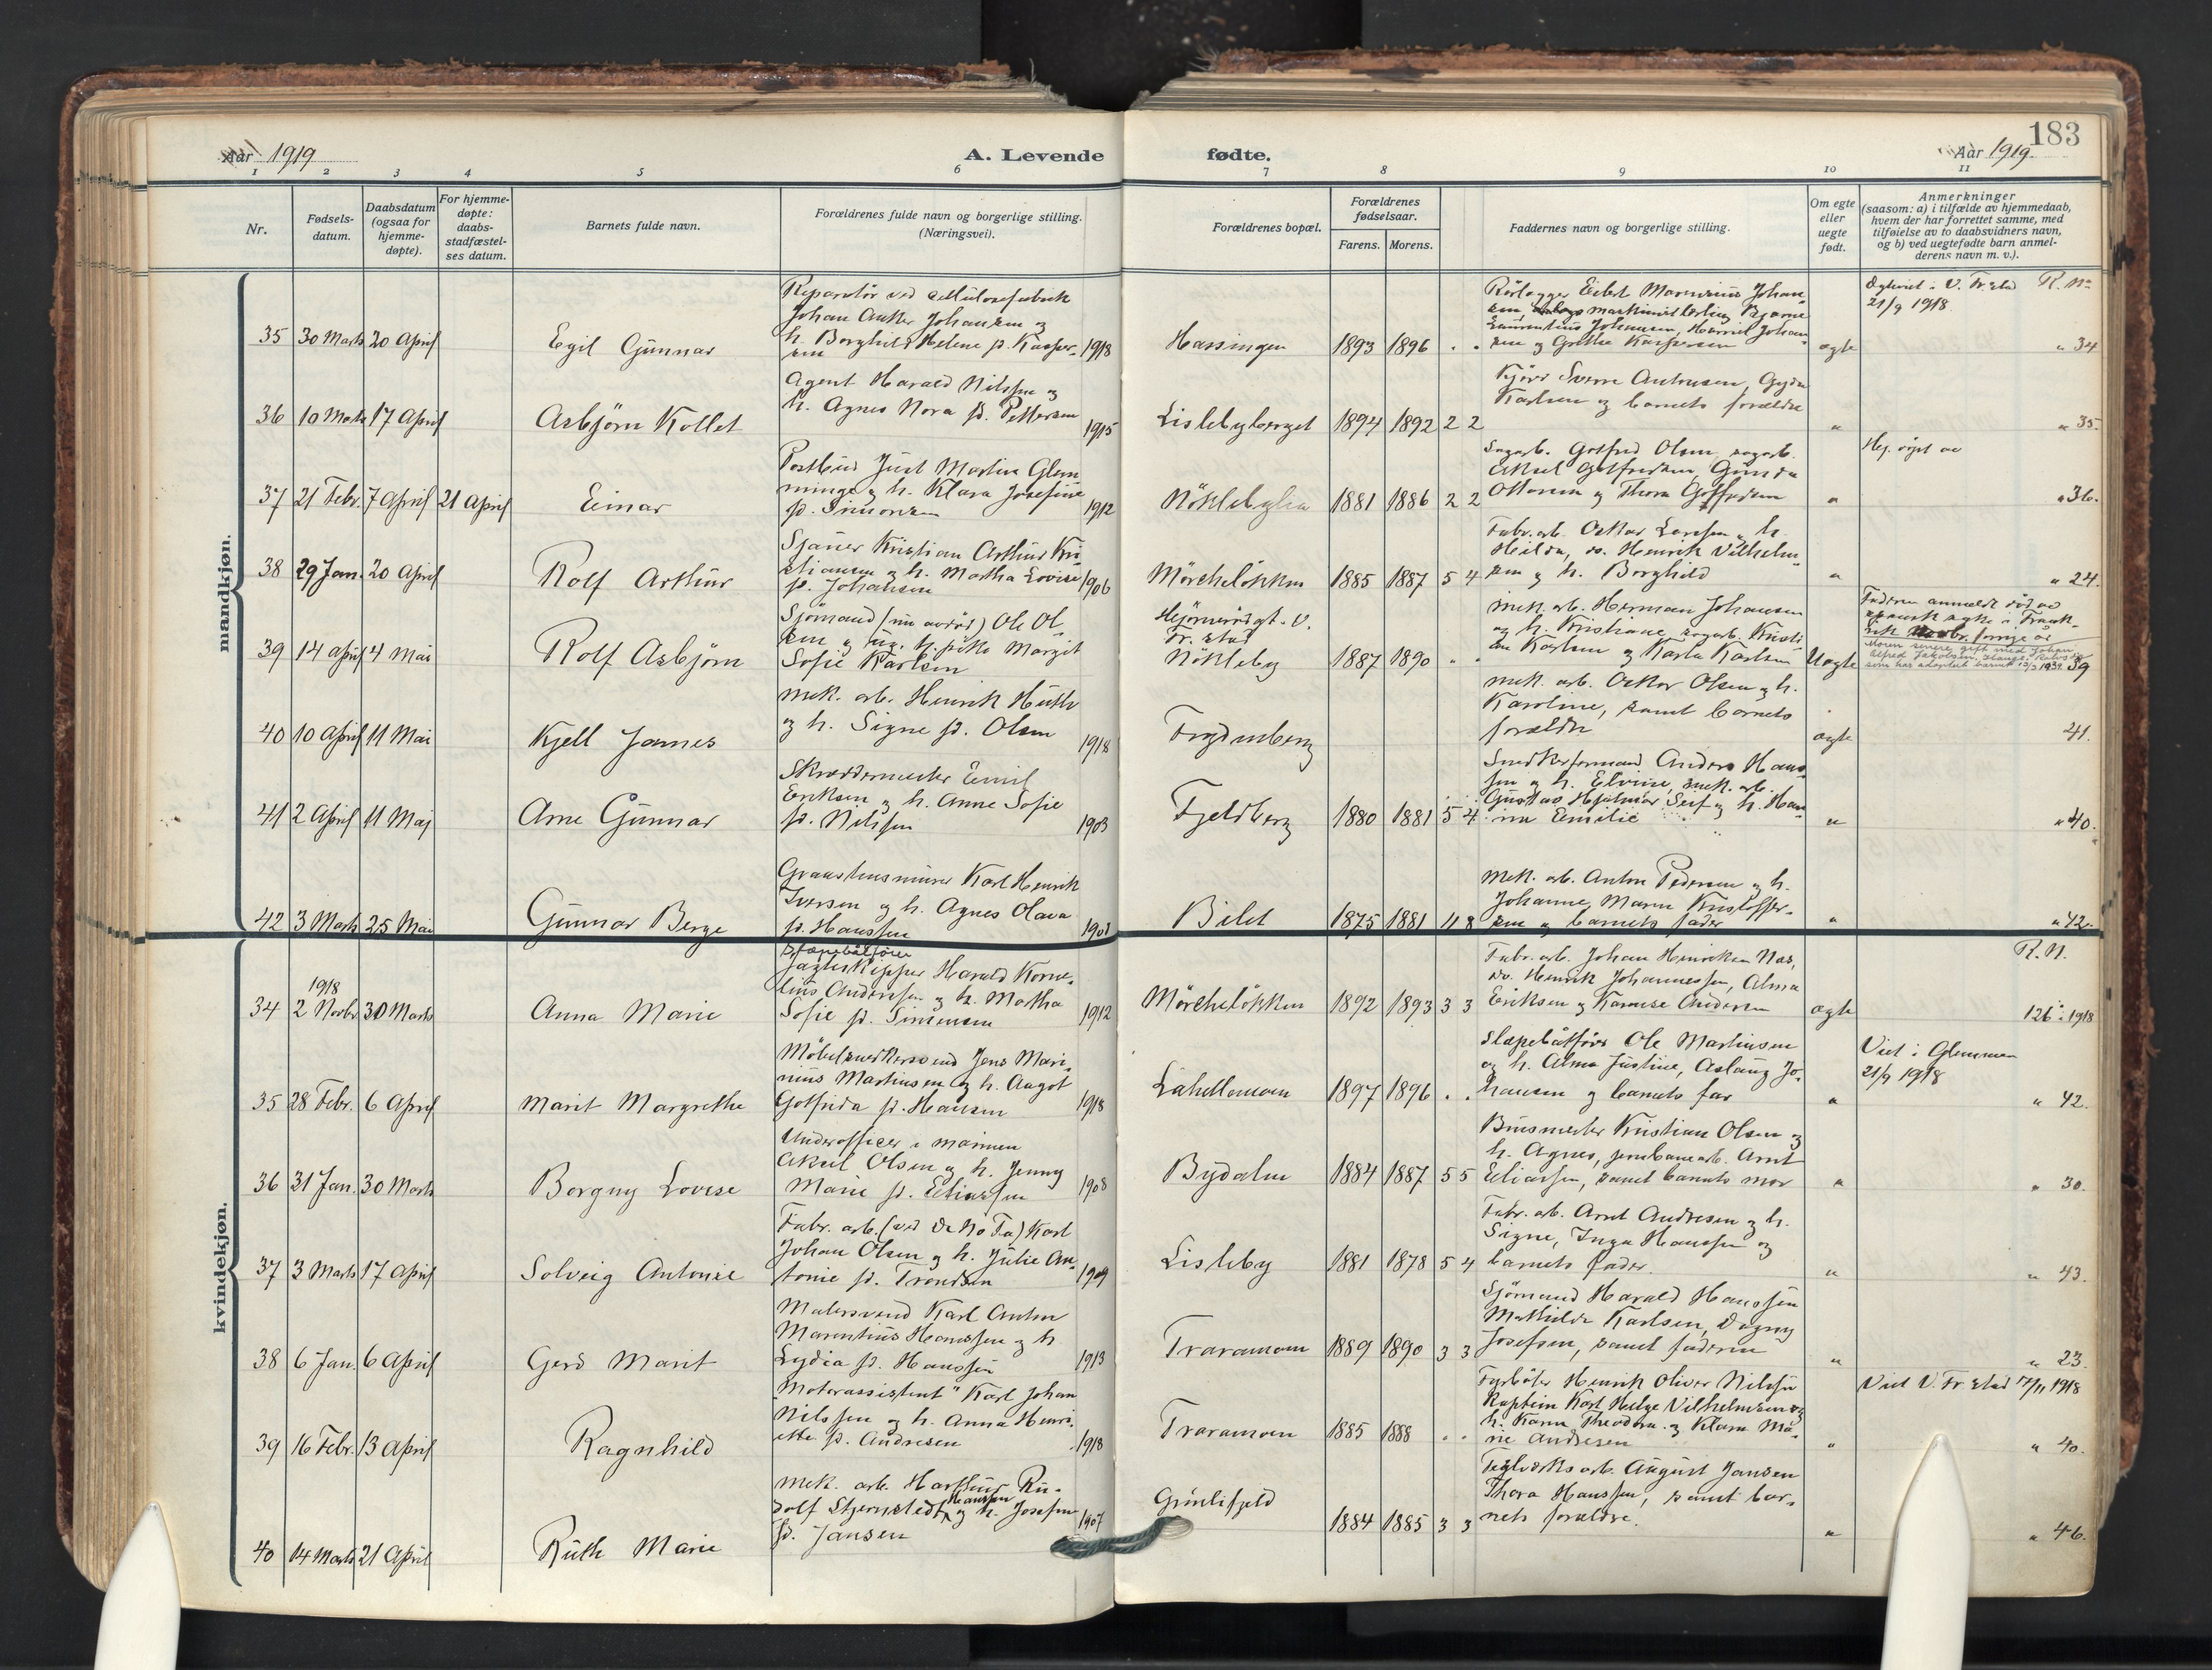 183
Aar 1919
A. Levende
fødte.
Aar 1919
1 2 3 4 5 6 7 8 9 10 11
Nr.
Fødsels-
datum.
Daabsdatum
(ogsaa for
hjemme-
døpte).
For hjemme-
døpte:
daabs-
stadfæstel-
ses datum.
Barnets fulde navn.
Forældrenes fulde navn og borgerlige stilling.
(Næringsvei).
Forældrenes bopæl.
Forældrenes
fødselsaar.
Farens. Morens.
Faddernes navn og borgerlige stilling.
Om egte
eller
uegte
født.
Anmerkninger
(saasom: a) i tilfælde av hjemmedaab,
hvem der har forrettet samme, med
tilføielse av to daabsvidners navn,
og b) ved uegtefødte barn anmel-
derens navn m. v.).
mandkjøn.
35 30 Marts 20 April
Egil Gunnar
Reparatör ved cellulosefabrik
Johan Anker Johansen og
h. Borghild Helene f. Kasper-
sen 1918
Hassingen 1893 1896 . .
Rörlegger Eilert Marensius Johan-
sen, maskinist Erling Bjarne
Laurentius Johansen, Harriet Johan-
sen og Grethe Kaspersen
ægte
Egteviet i V. Fr.stad
21/9 1918
R. No
" 34
36 10 Marts 17 April
Asbjörn Kollet
Agent Harald Nilssen og
h. Agnes Nora f. Pettersen
1915
Lislebyberget 1894 1892 2 2
Sverre Antonsen, Gyda
Karlsen og barnets forældre
"
" 35.
37 21 Febr. 7 April 21 April
Einar
Postbud Just Martin Glem-
minge og h. Klara Josefine
f. Simonsen 1912
Nöklebylia 1881 1886 2 2
Sagarb. Gotfred Olsen, sagarb.
Aksel Gotfredsen, Gunda
Ottosen og Thora Gotfredsen
"
Hj. döpt av
" 36.
38 29 Jan. 20 April
Rolf Arthur
Sjauer Kristian Arthur Kri-
stiansen og h. Martha Lovise
f. Johansen 1906
Mörcheløkken 1885 1887 5 4
Fabr.arb. Oskar Larssen og h.
Hilda, do. Henrik Vilhelm-
sen og h. Borghild
"
" 24.
39 14 April 4 Mai
Rolf Asbjörn
Sjömand (nu avdöd) Ole Ol-
sen og ug. h. pike Margit
Sofie Karlsen
Hjörnerödgt. V.
Fr.stad
Nökleby 1887 1890 " "
mek. arb. Herman Johansen
og h. Kristiane, sagarb. Kristi-
an Karlsen og Karla Karlsen
Uægte
Faderen anmeldt död av
spansk syke i Frank-
rik Novbr. forrige år
Moren senere gift med Johan
Alfred Jakobsen,
som har adoptert barnet 13/3 1939.
39
40 10 April 11 Mai
Kjell James
Mek. arb. Henrik Huth
og h. Signe f. Olsen
1918
Frydenberg
mek. arb. Oskar Olsen og h.
Karoline, samt barnets
forældre
ægte
41.
41 2 April 11 Maj
Arne Gunnar
Skræddermester Emil
Eriksen og h. Anne Sofie
f. Nilssen 1903
Fjeldberg 1880 1881 5 4
Snedkerformand Anders Hans-
sen og h. Elvine, mek. arb.
Gustav Hjalmar Seif og h. Han-
na Emilie
"
" 40.
42 3 Marts 25 Mai
Gunnar Berge
Graastensmurer Karl Henrik
Iversen og h. Agnes Olava
f. Hanssen 1901
Bilet 1875 1881 11 8
Mek. arb. Anton Pedersen og h.
Johanne, Maren Kristoffer-
sen og barnets fader
"
" 42.
kvindekjøn.
34 1918
2 Novbr. 30 Marts
Anna Marie
Slæpebåtförer
Jagtskipper Harald Korne-
lius Andersen og h. Martha
Sofie f. Simensen 1912
Mörcheløkken 1892 1893 3 3
Fabr.arb. Johan Henriksen Nas,
do. Henrik Johannessen, Alma
Eriksen og Andersen
ægte
R. N.
126 i 1918
35 28 Febr. 6 April
Marit Margrethe
Möbelsnedkersvend Jens Mari-
nius Martinsen og h. Aagot
Gotfrida f. Hansen 1918
Lahellemoen 1897 1896 . .
Slæpebåtförer Ole Martinsen
og h. Alma Justine, Aslaug Jo-
hansen og barnets far
"
Viet i Glemmen
21/9 1918
" 42.
36 31 Jan. 30 Marts
Borgny Lovise
Underofficer i marinen
Aksel Olsen og h. Jenny
Marie f. Eliassen 1908
Bydalen 1884 1887 5 5
Kristian Olsen og
h. Agnes, jernbanearb. Arnt
Eliassen, samt barnets mor
"
" 30.
37 3 Marts 17 April
Solveig Antonie
Fabr. arb. (ved De No Fa) Karl
Johan Olsen og h. Julie An-
tonie f. Trondsen 1909
Lisleby 1881 1878 5 4
Fabr. arb. Arnt Andresen og h.
Signe, Inga Hanssen og
barnets fader.
"
" 43.
38 6 Jan. 6 April
Gerd Marit
Malersvend Karl Anton
Marentius Hanssen og h.
Lydia f. Hanssen 1913
Traramoen 1889 1890 3 3
Sjömand Harald Hanssen
Mathilde Karlsen, Dagny
Josefsen, samt faderen
"
" 23.
39 16 Febr. 13 April
Ragnhild
"Motorassistent" Karl Johan
Nilssen og h. Anna Henri-
ette f. Andresen 1918
Traramoen 1885 1888 . .
Fyrböter Henrik Oliver Nilssen
Kaptein Karl Helge Vilhelmsen og
h. Karen Theodora og Klara Ma-
rie Andresen
"
Viet V. Fr.stad 17/11 1918
" 40.
40 14 Marts 21 April
Ruth Marie
Mek. arb. Harthur Ru-
dolf Stjernstedt Hanssen og h. Josefine
f. Jansen 1907
Grönlifjeld
1884 1885 3 3
Teglverksarb. August Jansen
Thora Hanssen, samt bar-
nets forældre.
"
" 46.